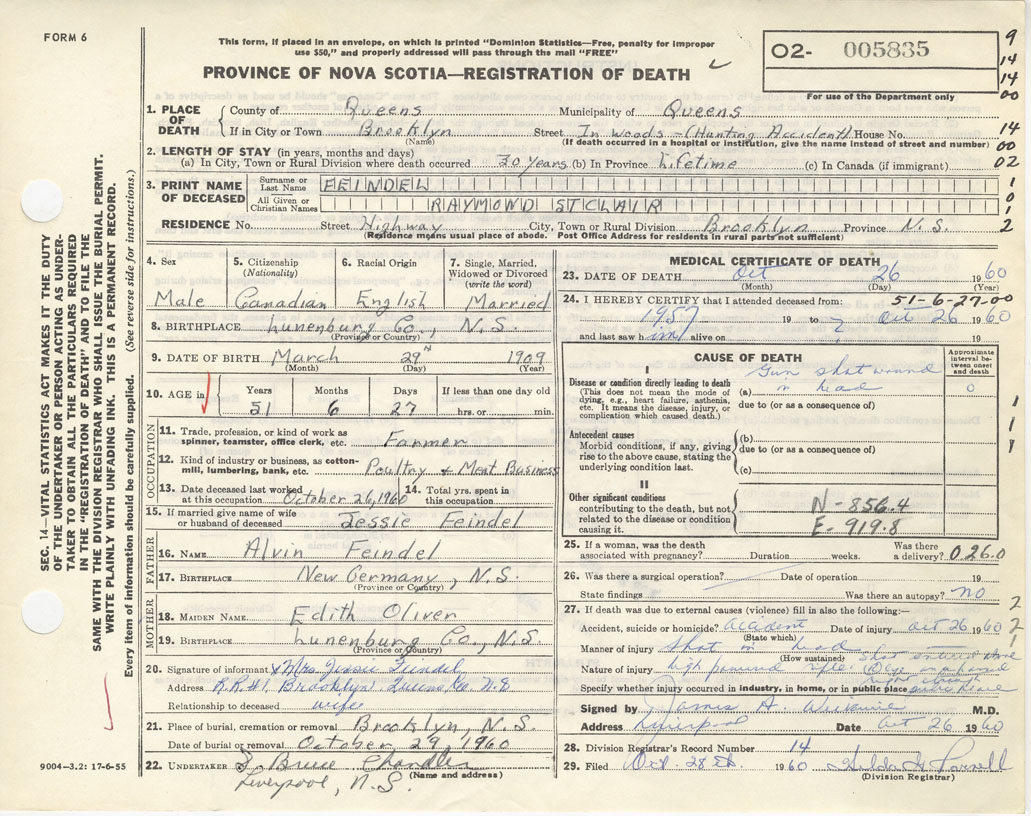 FORM 6
This form, if placed in an envelope, on which is printed "Dominion Statistics—Free, penalty for improper
use $50," and properly addressed will pass through the mail "FREE"
PROVINCE OF NOVA SCOTIA—REGISTRATION OF DEATH
02- 005835
For use of the Department only
9
14
14
00
14
00
02
1
0
1
2
1. PLACE OF DEATH
County of Queens Municipality of Queens
If in City or Town Brooklyn Street In Woods - (Hunting Accident) House No.
(Name) (If death occurred in a hospital or institution, give the name instead of street and number)
2. LENGTH OF STAY (in years, months and days)
(a) In City, Town or Rural Division where death occurred 30 years (b) In Province Lifetime (c) In Canada (if immigrant)
3. PRINT NAME OF DECEASED
Surname or Last Name FEINDEL
All Given or Christian Names RAYMOND ST CLAIR
RESIDENCE No. Street Highway City, Town or Rural Division Brooklyn Province N.S.
(Residence means usual place of abode. Post Office Address for residents in rural parts not sufficient)
4. Sex Male
5. Citizenship (Nationality) Canadian
6. Racial Origin English
7. Single, Married, Widowed or Divorced (write the word) Married
8. BIRTHPLACE Lunenburg Co., N.S.
(Province or Country)
9. DATE OF BIRTH March 29th 1909
(Month) (Day) (Year)
10. AGE in Years Months Days If less than one day old
51 6 27 hrs. or min.
OCCUPATION
11. Trade, profession, or kind of work as spinner, teamster, office clerk, etc. Farmer
12. Kind of industry or business, as cotton-mill, lumbering, bank, etc. Poultry & Meat Business
13. Date deceased last worked at this occupation October 26, 1960
14. Total yrs. spent in this occupation
15. If married give name of wife or husband of deceased Jessie Feindel
FATHER
16. NAME Alvin Feindel
17. BIRTHPLACE New Germany, N.S.
(Province or Country)
MOTHER
18. MAIDEN NAME Edith Oliver
19. BIRTHPLACE Lunenburg Co., N.S.
(Province or Country)
20. Signature of informant x Mrs. Jessie Feindel
Address R.R.#1 Brooklyn Queens Co. N.S
Relationship to deceased wife
21. Place of burial, cremation or removal Brooklyn N.S.
Date of burial or removal October 29, 1960
22. UNDERTAKER Bruce Chandler
(Name and address)
Liverpool, N.S.
MEDICAL CERTIFICATE OF DEATH
23. DATE OF DEATH Oct 26 1960
(Month) (Day) (Year)
24. I HEREBY CERTIFY that I attended deceased from: 51-6-27-00
1957 19 to Oct 26 1960
and last saw him alive on 19
CAUSE OF DEATH
Approximate interval between onset and death
I
Disease or condition directly leading to death
(This does not mean the mode of dying, e.g., heart failure, asthenia, etc. It means the disease, injury, or complication which caused death.)
(a) Gun shot wound in head 0
due to (or as a consequence of)
Antecedent causes
Morbid conditions, if any, giving rise to the above cause, stating the underlying condition last.
(b)
due to (or as a consequence of)
(c)
II
Other significant conditions
contributing to the death, but not related to the disease or condition causing it.
N-856.4
E-919.8
1
1
1
25. If a woman, was the death associated with pregnancy? Duration weeks. Was there a delivery? 026.0
26. Was there a surgical operation? Date of operation 19
State findings Was there an autopsy? no
27. If death was due to external causes (violence) fill in also the following:—
Accident, suicide or homicide? Accident Date of injury Oct 26 1960
(State which)
Manner of injury Shot in head
(How sustained)
Nature of injury high powered rifle
Specify whether injury occurred in industry, in home, or in public place
2
2
1
Signed by James A. M.D.
Address Liverpool Date Oct 26 1960
28. Division Registrar's Record Number 14
29. Filed Oct. 28th. 1960 Hilda
(Division Registrar)
SEC. 14—VITAL STATISTICS ACT MAKES IT THE DUTY
OF THE UNDERTAKER OR PERSON ACTING AS UNDER-
TAKER TO OBTAIN ALL THE PARTICULARS REQUIRED
IN THE "REGISTRATION OF DEATH" AND TO FILE THE
SAME WITH THE DIVISION REGISTRAR WHO SHALL ISSUE THE BURIAL PERMIT.
WRITE PLAINLY WITH UNFADING INK. THIS IS A PERMANENT RECORD.
Every item of information should be carefully supplied. (See reverse side for instructions.)
9004—3.2: 17-6-55